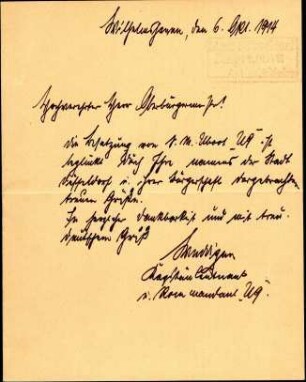 Wilhelmshaven, den 6. Okt. 1914
Hochverehrter Herr Oberbürgermstr!
Die Besatzung von S. M. Uboot "U9" ist
beglückt durch Ihre namens der Stadt
Düsseldorf u. ihrer Bürgerschaft dargebrachten
treuen Grüße.
In herzlicher Dankbarkeit und mit treu
deutschem Gruß
Weddigen
Kapitänleutnant
u. Kommandant "U9".